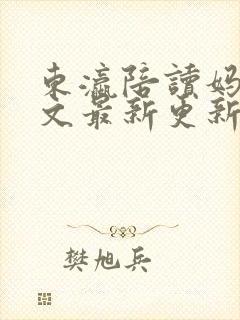 東瀛陪讀妈
文最新更新
樊旭兵